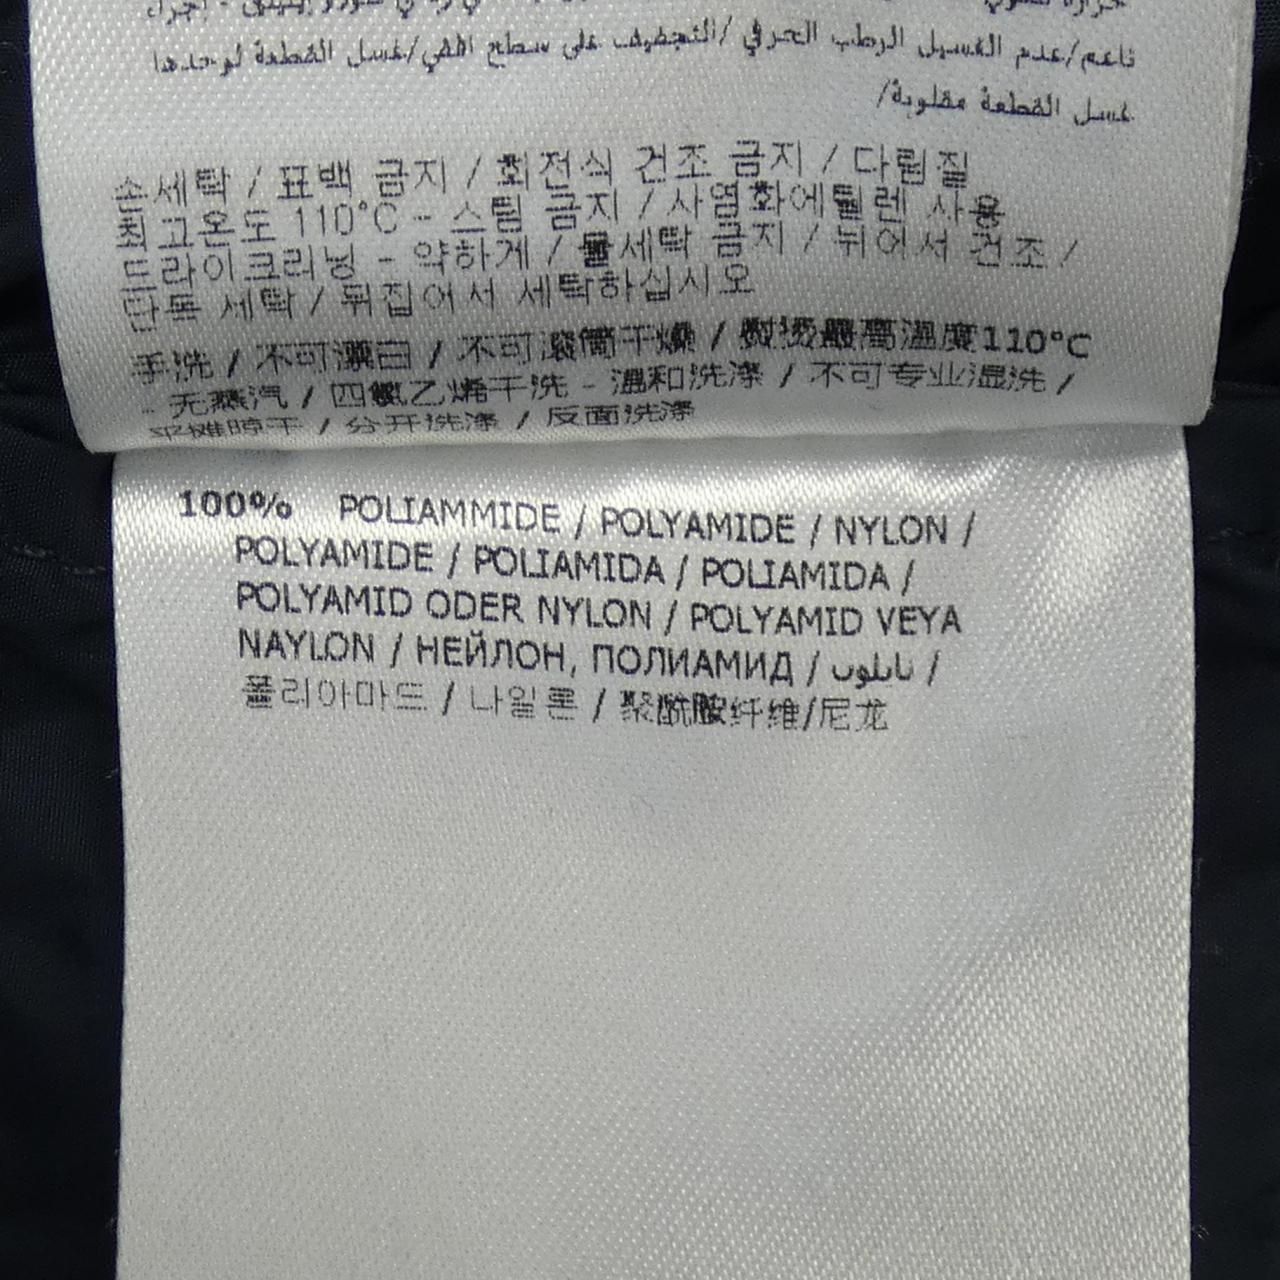 ناعم/عدم الغسيل الرطب الحرفي /التجفيف على سطح افقي/غسل القطعة لوحدها
غسل القطعة مقلوبة/
손세탁 / 표백 금지 / 회전식 건조 금지 / 다림질
최고온도 110°C - 스팀 금지 / 사염화에틸렌 사용
드라이크리닝 - 약하게 / 물세탁 금지 / 뉘어서 건조 /
단독 세탁 / 뒤집어서 세탁하십시오
手洗 / 不可漂白 / 不可滚筒干燥 / 熨烫最高温度110°C
- 无蒸汽 / 四氯乙烯干洗 - 温和洗涤 / 不可专业湿洗 /
平摊晾干 / 分开洗涤 / 反面洗涤
100% POLIAMMIDE / POLYAMIDE / NYLON /
POLYAMIDE / POLIAMIDA / POLIAMIDA /
POLYAMID ODER NYLON / POLYAMID VEYA
NAYLON / НЕЙЛОН, ПОЛИАМИД / نايلون /
폴리아마드 / 나일론 / 聚酰胺纤维/尼龙